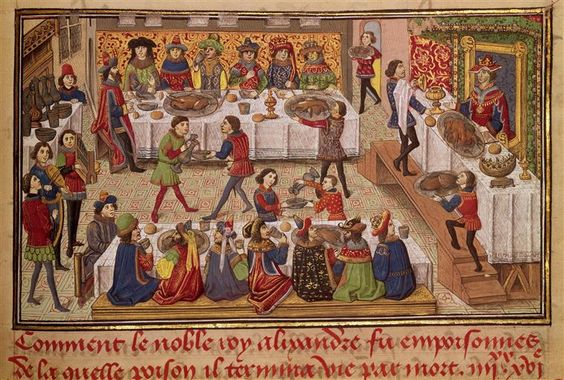 Comment le noble roy alixandre fu empoisonnes
de la quelle poison il termina vie par mort. iiijxx xvj